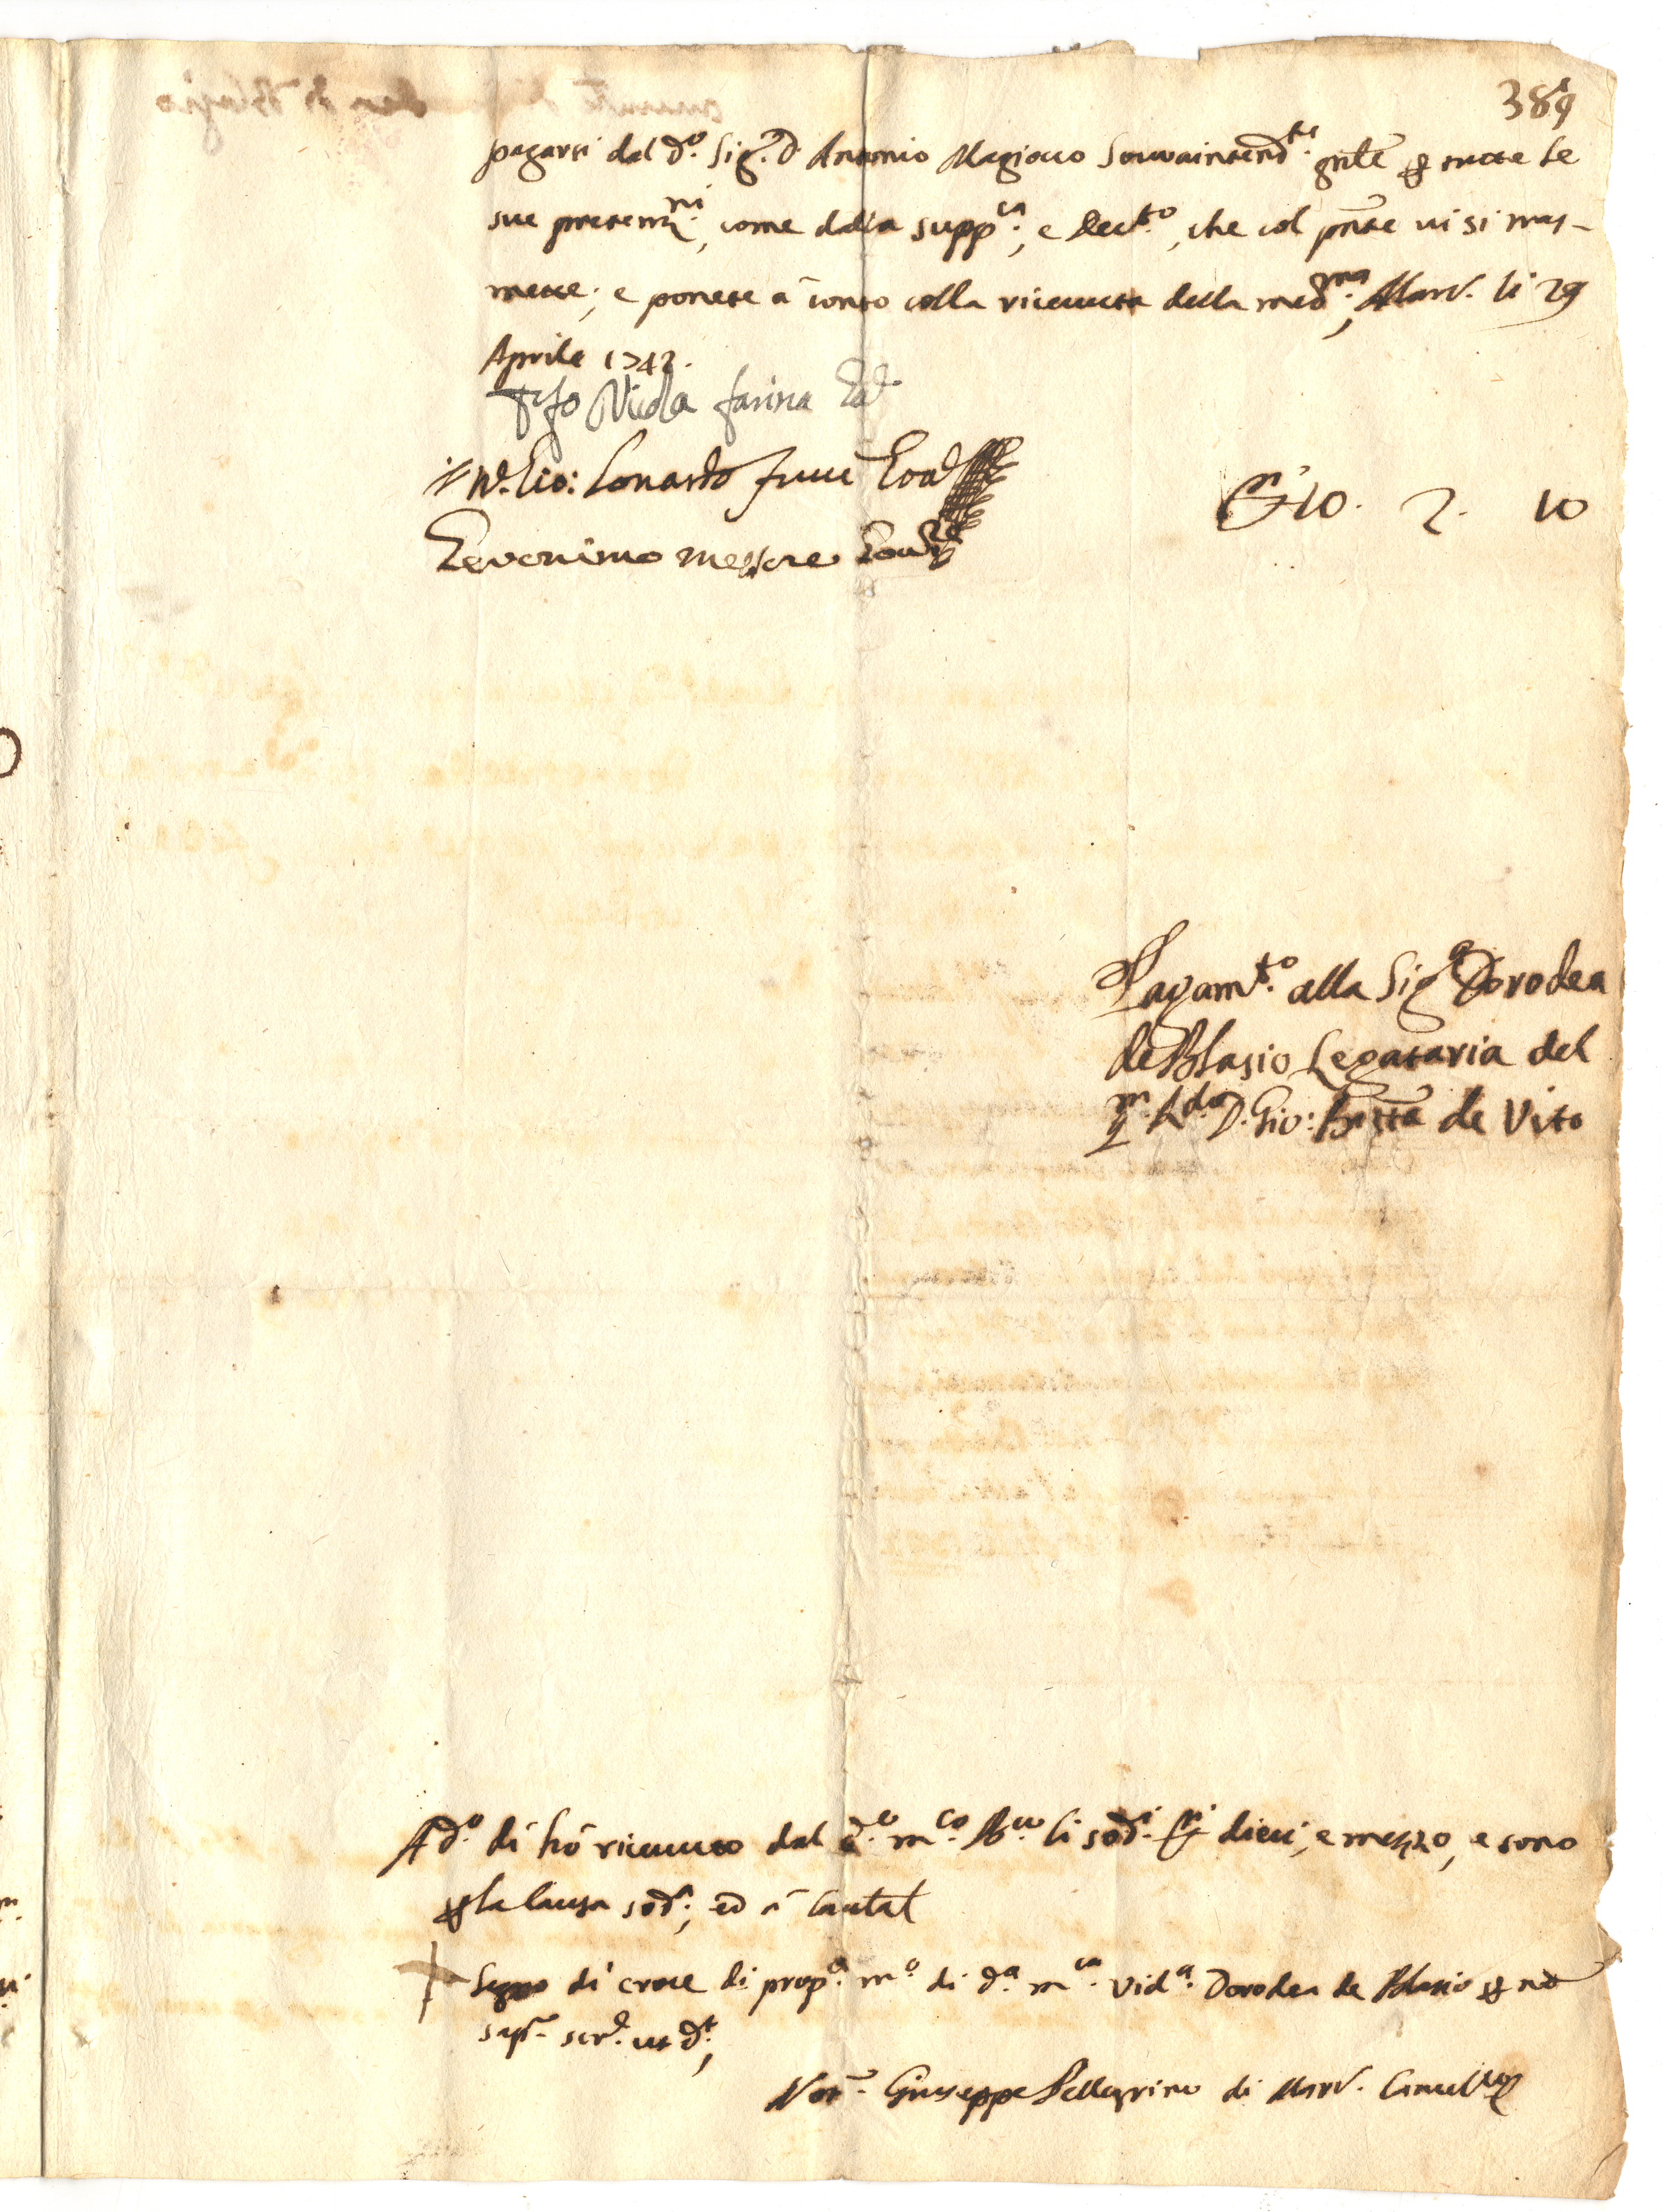 389
pagarsi dal d.º Sig.r D. Antonio Magiocco Sovraintend.te gnle p tutte le
sue pretenz.ni, come dalla supp.ca, e Dec.to, che col pnte vi si tras-
mette; e ponete à conto colla ricevuta della med.ma, Marv. li 29
Aprile 1742.
Nicola farina
N.r Gio: Lonardo
Geronimo messere
10. 2. 10
Pagam.to alla Sig.a Dorodea
de Blasio Legataria del
q.m R.do D. Gio: Batta de Vito
A d.º dì hò ricevuto dal d.º m.co li sod.i D.i dieci, e mezzo, e sono
p la causa sod.a, ed à cautal
+ Segno di croce di prop.a m.º di d.a m.ca Vid.a Dorodea de Blasio p nò
sap.r scr.e ut d.t,
Not.r Giuseppe Pellegrino di Marv.